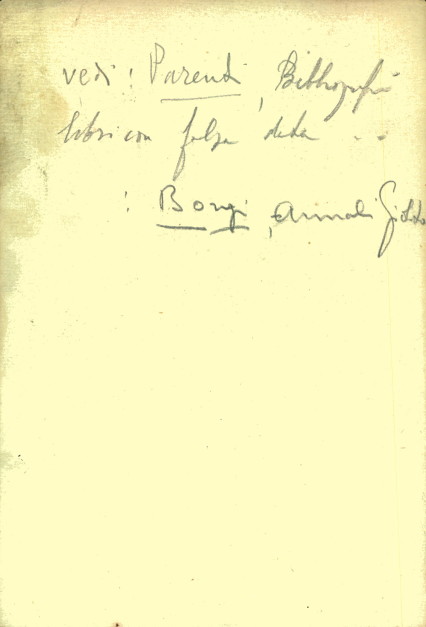 vedi: Parenti, Bibliografia
libri con falsa data ..
: Bongi, Annali Giolito